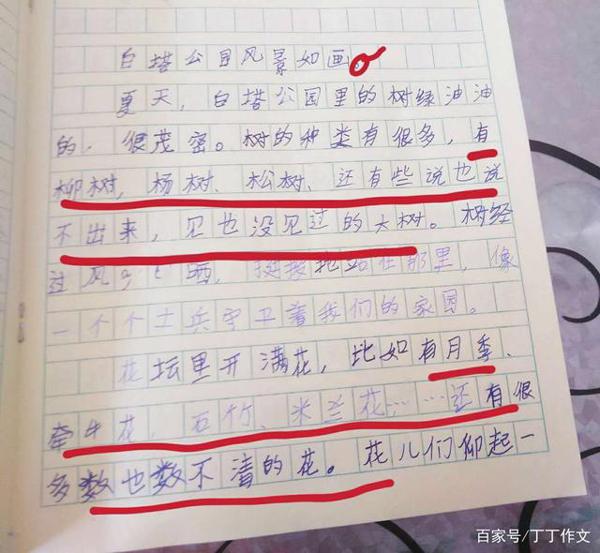 白塔公园风景如画。
夏天，白塔公园里的树绿油油
的，很茂密。树的种类有很多，有
柳树，杨树、松树、还有些说也说
不出来，见也没见过的大树。树经
过风吹日晒，挺拔地站在那里，像
一个个士兵守卫着我们的家园。
花坛里开满花，比如有月季、
牵牛花、石竹、米兰花……还有很
多数也数不清的花。花儿们仰起一
百家号/丁丁作文